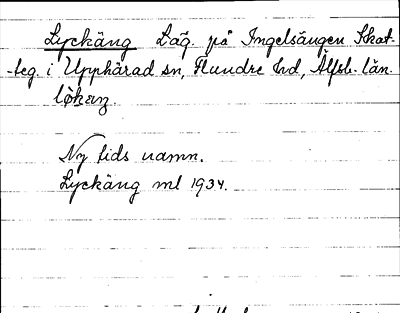 Lyckäng Läg. på Ingelsången Skat-
-teg. i Upphärad sn, Flundre hd, Älfsb. län.
Ny tids namn.
Lyckäng ml 1934.